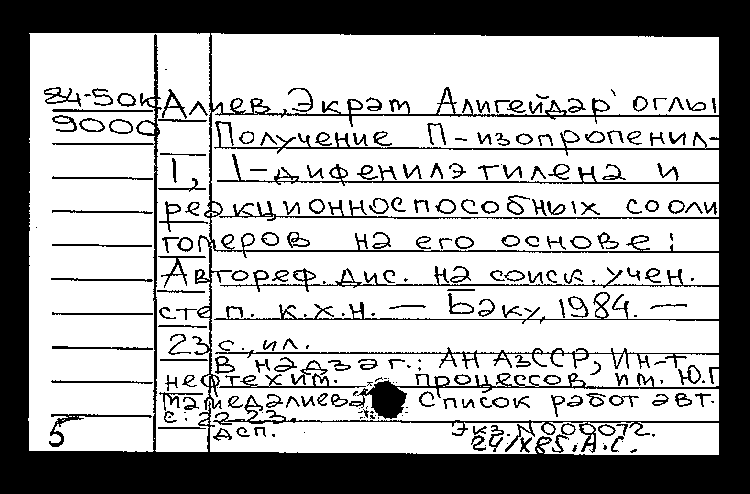 84-50к Алиев, Экрат Алигейдар оглы
9000 Получение П-изопропенил-
1, 1-дифенилэтилена и
реакционноспособных сооли
гомеров на его основе:
Автореф. дис. на соиск. учен.
степ. к.х.н. — Баку, 1984. —
23 с., ил.
В надзаг.: АН АзССР, Ин-т
нефтехим. процессов им. Ю.Г
Мамедалиева Список работ авт.
с. 22-23.
дсп. Экз. N000072.
5 24/X85. А.С.